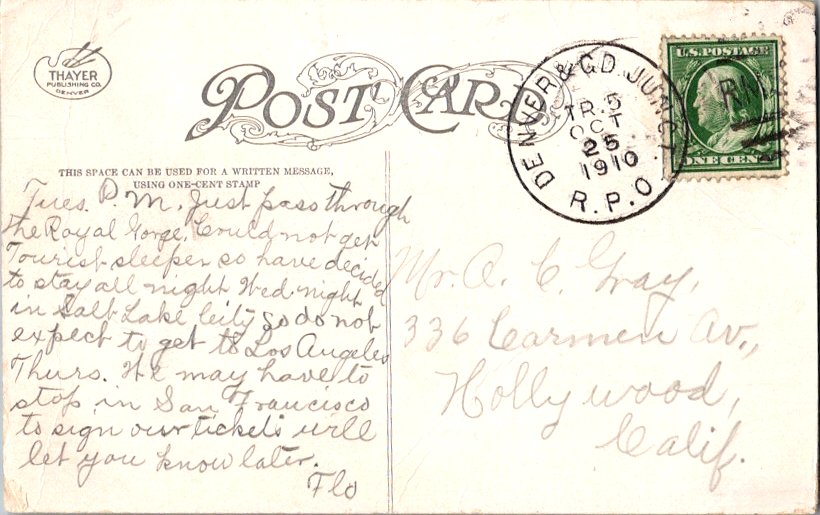 THAYER
PUBLISHING CO.
DENVER
POST CARD
DENVER & GD. JUNCT.
TR. 5
OCT
25
1910
R.P.O.
U.S. POSTAGE
ONE CENT
RMS
THIS SPACE CAN BE USED FOR A WRITTEN MESSAGE,
USING ONE-CENT STAMP
Tues. P. M. Just pass through
the Royal Gorge. Could not get
Tourist sleeper so have decided
to stay all night Wed. night
in Salt Lake City so do not
expect to get to Los Angeles
Thurs. We may have to
stop in San Francisco
to sign our tickets will
let you know later.
Flo
Mr. A. C. Gray,
336 Carmen Av.,
Hollywood,
Calif.